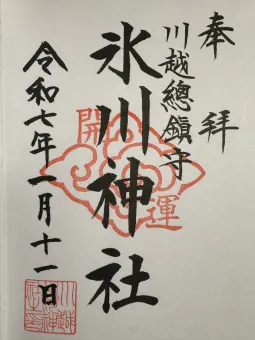 奉拝
川越總鎮守
氷川神社
開運
令和七年一月十一日